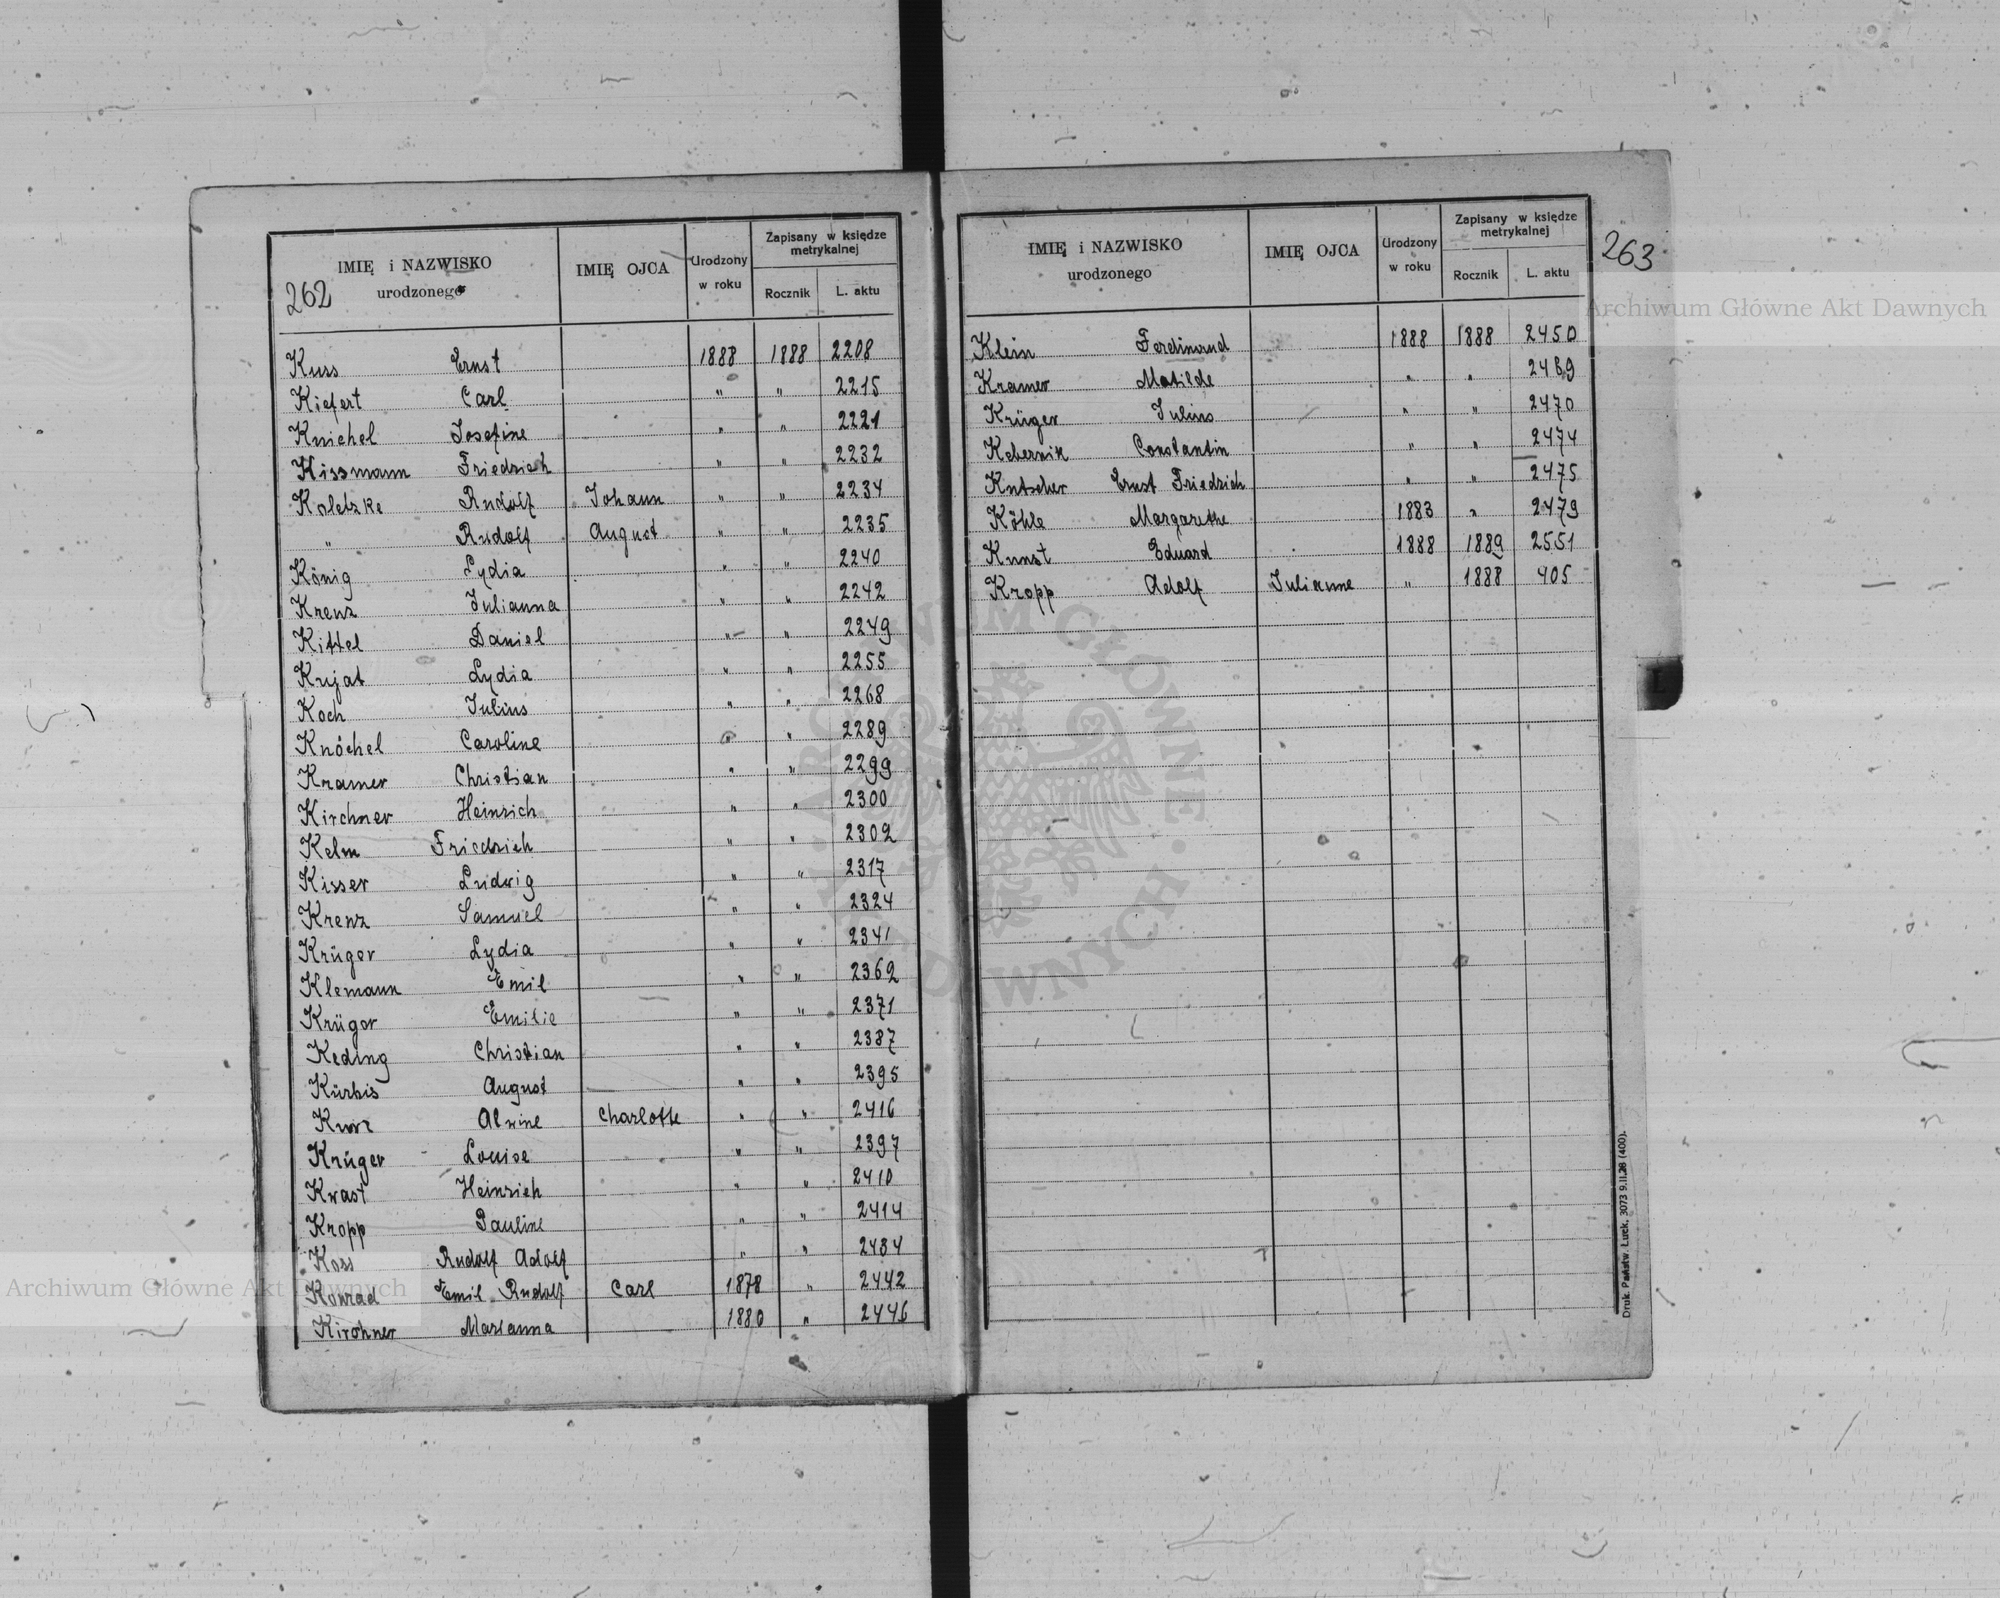 IMIĘ i NAZWISKO urodzonego IMIĘ OJCA Urodzony w roku Zapisany w księdze metrykalnej Rocznik L. aktu
262
Kuss Ernst 1888 1888 2208
Kiefert Carl " " 2215
Knichel Josefine " " 2221
Kissmann Friedrich " " 2232
Koletzke Rudolf Johann " " 2234
" Rudolf August " " 2235
König Lydia " " 2240
Krenz Julianna " " 2242
Kittel Daniel " " 2249
Kujat Lydia " " 2255
Koch Julius " " 2268
Knöchel Caroline " " 2289
Kramer Christian " " 2299
Kirchner Heinrich " " 2300
Kelm Friedrich " " 2302
Kisser Ludwig " " 2317
Krenz Samuel " " 2324
Krüger Lydia " " 2341
Klemann Emil " " 2362
Krüger Emilie " " 2371
Keding Christian " " 2387
Kürbis August " " 2395
Alwine Charlotte " " 2416
Krüger Louise " " 2397
Kwast Heinrich " " 2410
Kropp Pauline " " 2414
Koss Rudolf Adolf " " 2434
Konrad Emil Rudolf Carl 1878 " 2442
Kirchner Marianna 1880 " 2446
IMIĘ i NAZWISKO urodzonego IMIĘ OJCA Urodzony w roku Zapisany w księdze metrykalnej Rocznik L. aktu
263
Klein Ferdinand 1888 1888 2450
Kramer Matilde " " 2469
Krüger Julius " " 2470
Kebernik Constantin " " 2474
Kutscher Ernst Friedrich " " 2475
Köhle Margarethe 1883 " 2479
Kunst Eduard 1888 1889 2551
Kropp Adolf Julianne " 1888 405
Druk. Państw. Łuck, 3073 9.II.28 (400).
Archiwum Główne Akt Dawnych
Archiwum Główne Akt Dawnych
ARCHIWUM GŁÓWNE AKT DAWNYCH